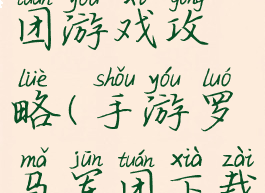 tuán yóu xì gōng
团游戏攻
lüè shǒu yóu luó
略(手游罗
mǎ jūn tuán xià zài
马军团下载